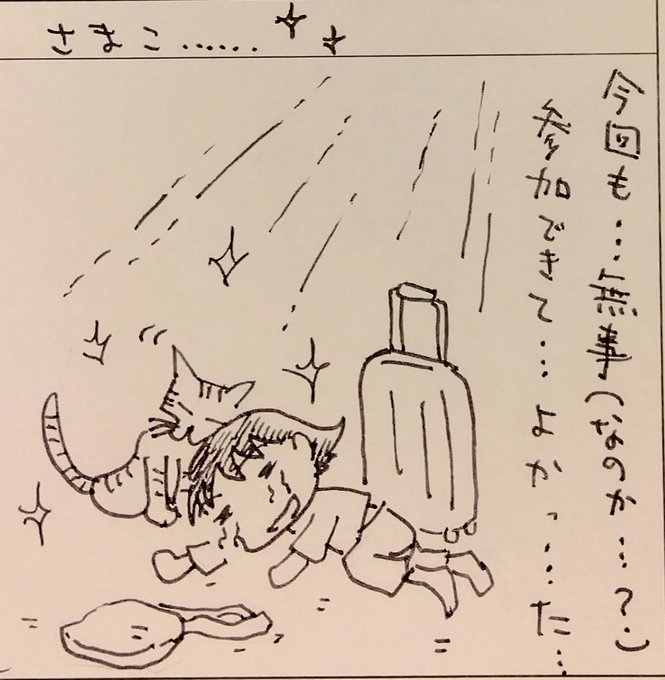 さまこ……
今回も…無事(なのか…?)
参加できて…よかっ….た…